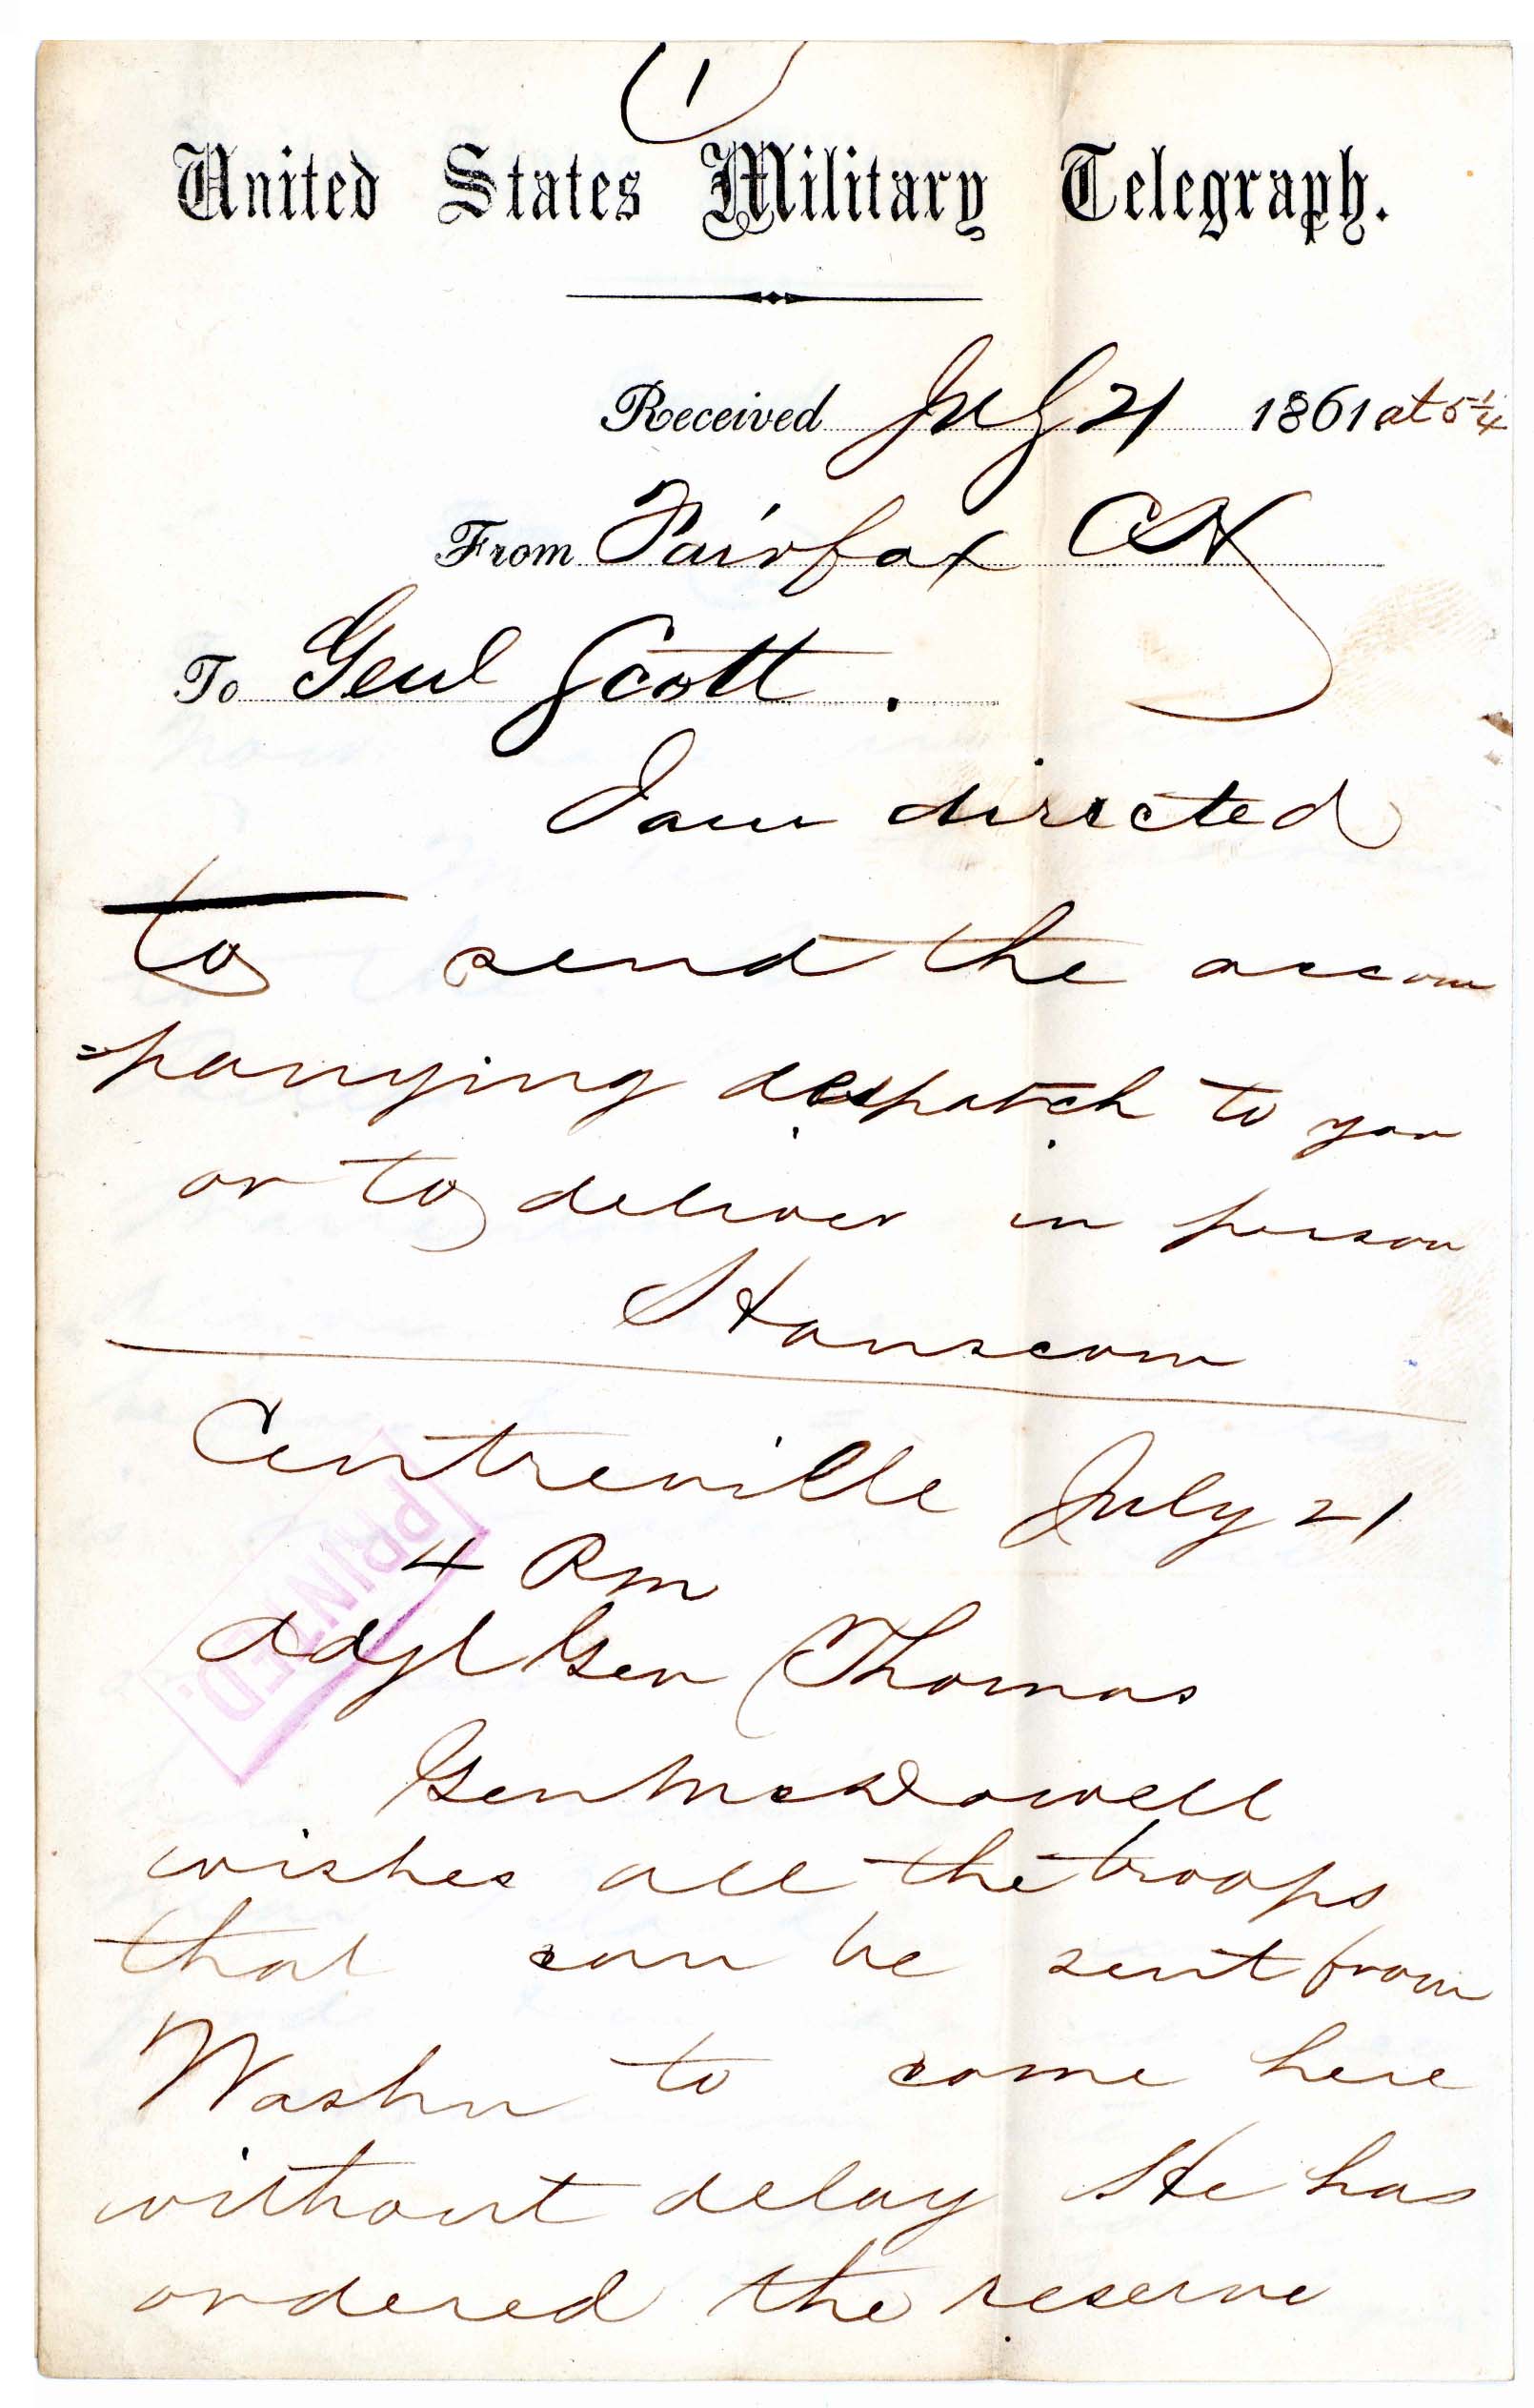 (1)
United States Military Telegraph.
Received July 21 1861 at 5 1/4
From Fairfax CH
To Genl Scott.
I am directed
to send the accom
=panying despatch to you
or to deliver in person
Hanscom
Centreville July 21
4 Pm
Adjt Gen Thomas
Gen McDowell
wishes all the troops
that can be sent from
Washn to come here
without delay He has
ordered the reserve
PRINTED.